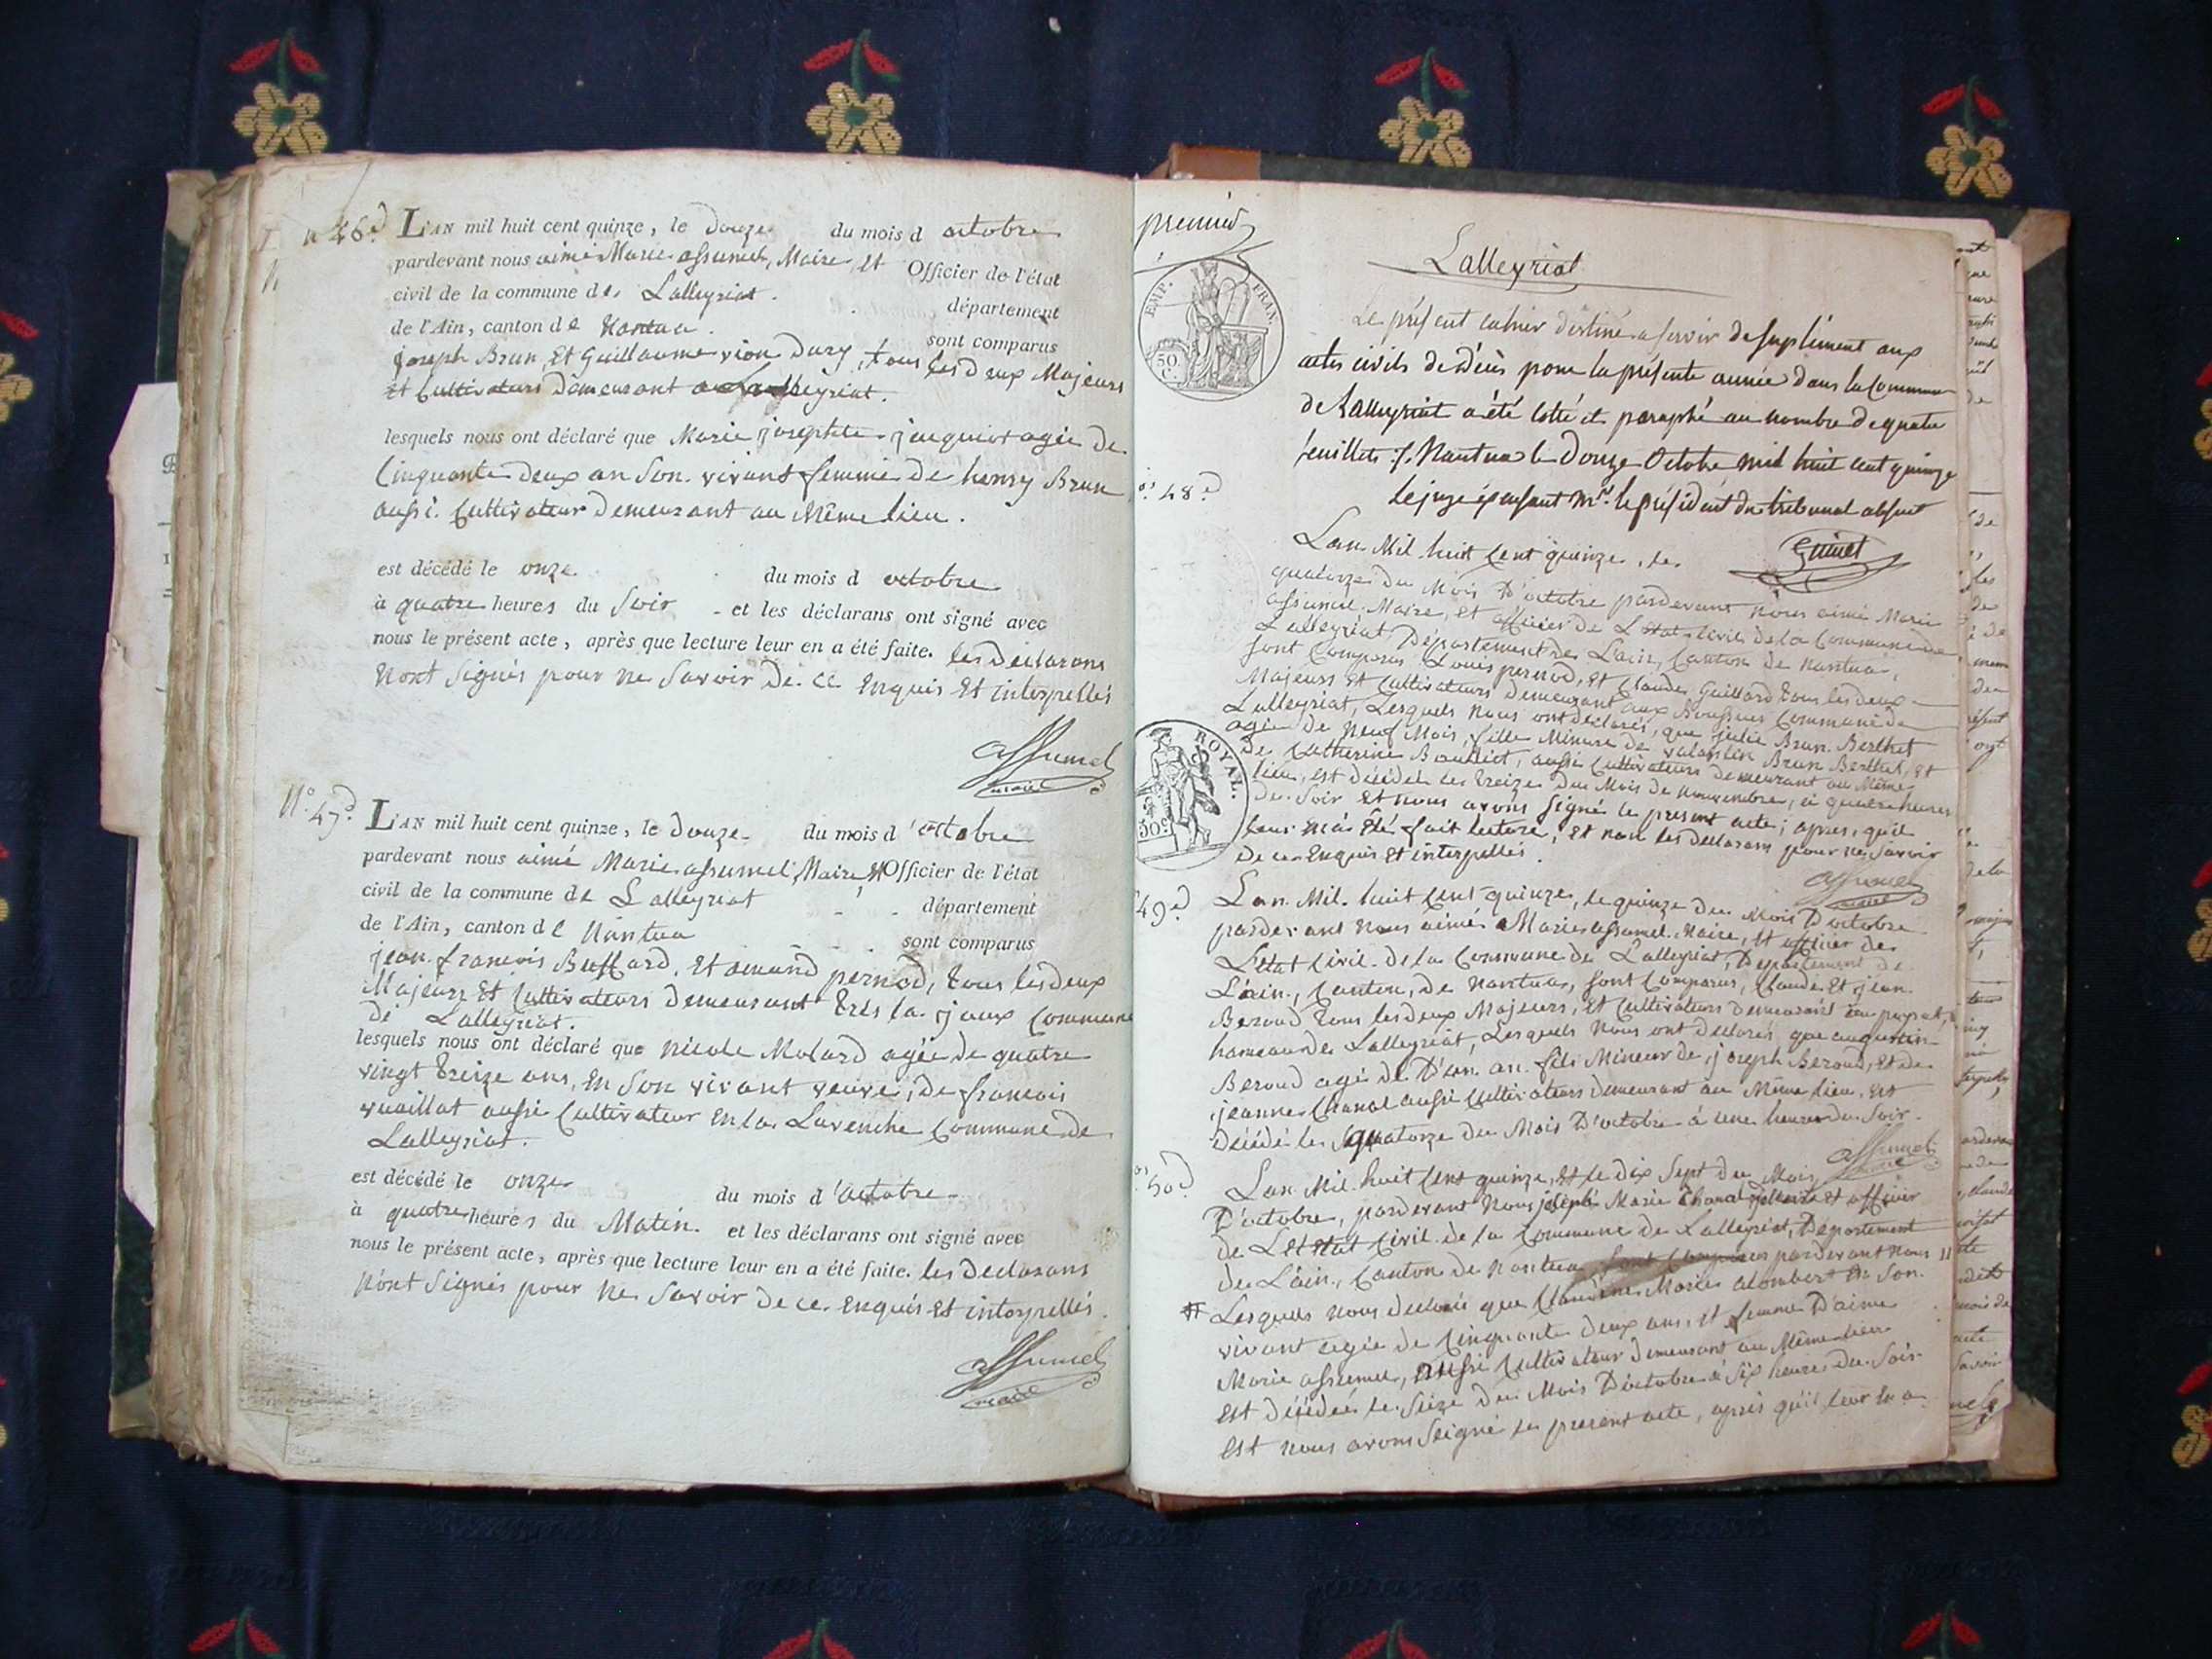 n 46.d L'AN mil huit cent quinze, le Douze du mois d octobre
pardevant nous aimé Marie assumel, Maire, et Officier de l'état
civil de la commune de Lalleyriat. département
de l'Ain, canton de Nantua. sont comparus
joseph Brun, Et Guillaume vion Dury, tous les deux Majeurs
Et Cultivateurs Demeurant a Lalleyriat.
lesquels nous ont déclaré que Marie josephte jacquiot agée de
Cinquante Deux an Son vivant femme De henry Brun
aussi Cultivateur Demeurant au Même lieu.
est décédé le onze du mois d octobre
à quatre heures du Soir et les déclarans ont signé avec
nous le présent acte, après que lecture leur en a été faite. les declarans
Nont Signés pour ne Savoir De ce Enquis Et interpellés
assumel
maire
N.o 47.d L'AN mil huit cent quinze, le Douze du mois d'octobre
pardevant nous aimé Marie assumel, Maire, Et Officier de l'état
civil de la commune de Lalleyriat département
de l'Ain, canton de Nantua sont comparus
jean françois Buffard, Et amand pernod, tous les deux
Majeurs Et Cultivateurs Demeurant Commune
de Lalleyriat.
lesquels nous ont déclaré que Nicole Molard agée de quatre
vingt treize ans, En Son vivant veuve, De françois
vuaillat aussi Cultivateur En la Lavenche Commune de
Lalleyriat.
est décédé le onze du mois d'octobre
à quatre heures du Matin. et les déclarans ont signé avec
nous le présent acte, après que lecture leur en a été faite. les Declarans
N'ont Signés pour ne Savoir De ce Enquis Et interpellés.
assumel
maire
premier
Lalleyriat
EMP. FRAN
50 C.
Le présent cahier destiné a servir de suplément aux
actes civils de décès pour la présente année dans la Commune
de Lalleyriat a été cotté et paraphé au nombre de quatre
feuillets. Nantua le Douze Octobre mil huit cent quinze
le juge Mr. le président du tribunal absent
48.d
Lan Mil huit Cent quinze, le
quatorze Du Mois D'octobre pardevant Nous aimé Marie
assumel Maire, Et officier De L'Etat Civil De la Commune de
Lalleyriat Département De L'ain, Canton De Nantua,
Sont Comparus Louis pernod, Et Claude Guillard tous les deux
Majeurs Et Cultivateurs Demeurant aux Commune De
Lalleyriat, Lesquels Nous ont déclarés, que julie Brun Berthet
agée De Neuf Mois, fille Mineure De valentin Brun Berthet, Et
De Catherine aussi Cultivateurs Demeurant au Même
lieu, est décédée le treize Du Mois De novembre, à quatre heures
De Soir Et nous avons Signé le present acte; apres, qu'il
leur En á Eté fait lecture, Et non les declarans pour ne Savoir
De ce Enquis Et interpellés.
ROYAL.
50 C
assumel
maire
49.d Lan Mil huit Cent quinze, le quinze Du Mois D'octobre
pardevant Nous aimé Marie assumel Maire, Et officier De
L'Etat Civil De la Commune De Lalleyriat, Departement De
L'ain, Canton, De Nantua, Sont Comparus, Claude Et jean
Beroud tous les deux Majeurs, Et Cultivateurs Demeurant
hameau De Lalleyriat, Lesquels Nous ont Declarés, que augustin
Beroud agé De D'un an fils Mineur De joseph Beroud, Et De
jeanne Chanal aussi Cultivateurs Demeurant au Même lieu, Est
Décédé le quatorze Du Mois D'octobre à une heure Du Soir.
assumel
maire
50.d Lan Mil huit Cent quinze, Et le Dix Sept Du Mois
D'octobre, pardevant Nous joseph Marie Chanal Et officier
De L'Etat Civil De la Commune De Lalleyriat, Departement
De L'ain, Canton De Nantua, Sont Comparus pardevant nous
# Lesquels nous que Claudine Marie alombert En Son
vivant agée De Cinquante Deux ans, Et femme D'aimé
Marie assumel, aussi Cultivateur Demeurant au Même lieu
Est Décédée le Seize Du Mois D'octobre à Six heures Du Soir
Est nous avons Seigné le present acte, après qu'il leur En a